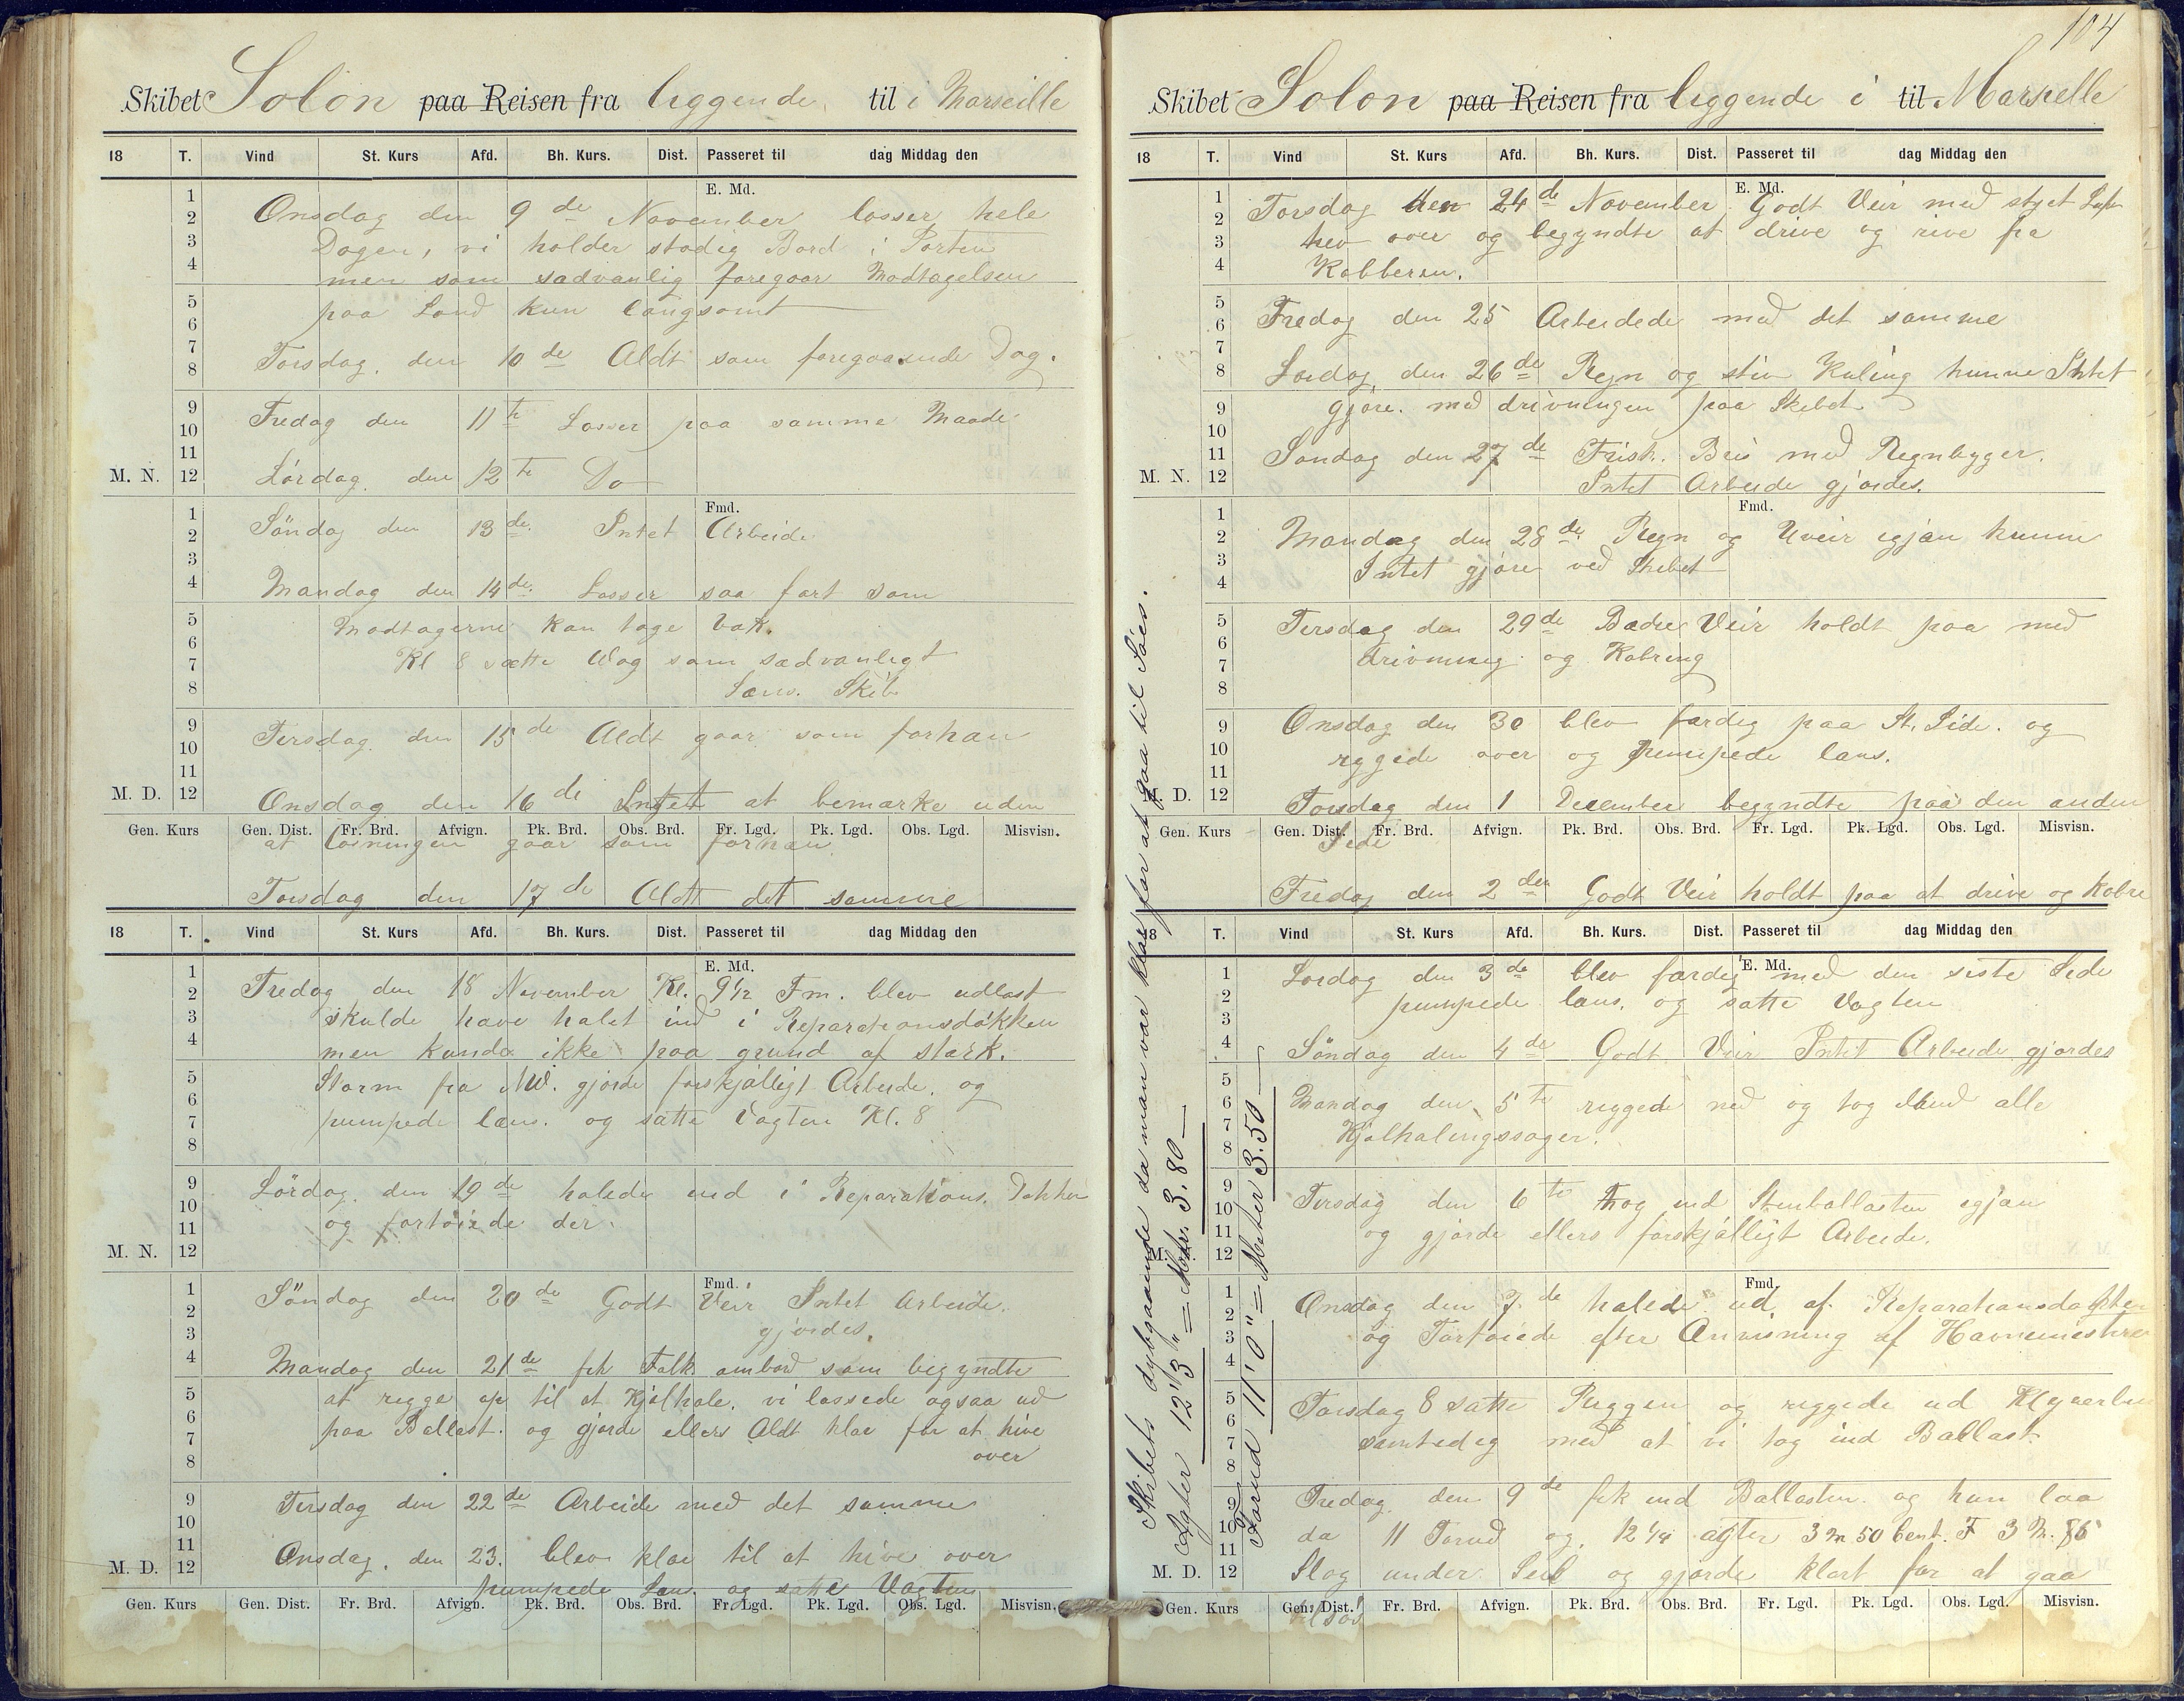 Skibet Solon paa Reisen fra liggende til i Marseille
18 T. Vind St. Kurs Afd. Bh. Kurs. Dist. Passeret til dag Middag den
E. Md.
Onsdag den 9de November losser hele
Dagen, vi holder stadig Bord i Porten
men som sædvanlig foregaar Modtagelsen
paa Land kun langsomt
Torsdag den 10de Aldt som foregaaende Dag.
Fredag den 11te Losser paa samme Maade
M. N.
Lördag den 12te Do
Fmd.
Söndag den 13de Intet Arbeide
Mandag den 14de Losser saa fort som
Modtagerne kan tage Væk.
Kl 8 sætte Vag som sædvanligt
Læns. Skib
Tirsdag den 15de Aldt gaar som forhan
M. D.
Onsdag den 16de Intet at bemærke uden
Gen. Kurs Gen. Dist. Fr. Brd. Afvign. Pk. Brd. Obs. Brd. Fr. Lgd. Pk. Lgd. Obs. Lgd. Misvisn.
at Losningen gaar som forhan
Torsdag den 17de Aldt det samme
18 T. Vind St. Kurs Afd. Bh. Kurs. Dist. Passeret til dag Middag den
E. Md.
Fredag den 18 November Kl. 9½ Fm. blev udlost
skulde have halet ind i Reparationsdökken
men kunde ikke paa grund af stærk.
Storm fra NW. gjorde forskjálligt Arbeide. og
pumpede læns. og satte Vagten Kl. 8
Lördag. den 19de halede ind i Reparations. Dokken
og fortöiede der.
M. N.
Fmd.
Söndag den 20de Godt Veir Intet Arbeide.
gjordes.
Mandag den 21de fik Folk ombord som begyndte
at rigge op til at Kjölhale. vi lossede ogsaa ud
paa Ballast. og gjorde ellers Aldt klar for at hive
over
Tirsdag den 22de Arbeide med det samme
M. D.
Onsdag. den 23. blev klar til at hive over
pumpede Læns. og satte Vagten
Gen. Kurs Gen. Dist. Fr. Brd. Afvign. Pk. Brd. Obs. Brd. Fr. Lgd. Pk. Lgd. Obs. Lgd. Misvisn.
104
Skibet Solon paa Reisen fra liggende i til Marseille
18 T. Vind St. Kurs Afd. Bh. Kurs. Dist. Passeret til dag Middag den
E. Md.
Torsdag den 24de November Godt Veir med styet
hev over og begyndte at drive og rive fra
Kobberen.
Fredag den 25 Arbeidede med det samme
Lordag den 26de Regn og stiv Kuling kunne Intet
gjöre. med drivningen paa Skibet
Sondag den 27de Frisk. Bris med Regnbyger.
M. N.
Intet Arbeide gjordes.
Fmd.
Mandag den 28de Regn og Uveir igjæn kunne
Intet gjöre ved Skibet
Tirsdag den 29de Bædre Veir holdt paa med
drivning og Kobring
Onsdag den 30 blev færdig paa St. Side. og
riggede over og pumpede læns.
M. D.
Torsdag den 1 December begyndte paa den anden
Gen. Kurs Gen. Dist. Fr. Brd. Afvign. Pk. Brd. Obs. Brd. Fr. Lgd. Pk. Lgd. Obs. Lgd. Misvisn.
Side
Fredag den 2den Godt Veir holdt paa at drive og kobre
18 T. Vind St. Kurs Afd. Bh. Kurs. Dist. Passeret til dag Middag den
E. Md.
Lordag den 3de blev færdig med den siste Side
pumpede læns. og satte Vagten
Söndag den 4de Godt Veir Intet Arbeide gjordes
Mandag den 5te riggede ned og tog iland alle
Kjolhalingssager.
Tirsdag den 6te tog ind Stenballasten igjæn
og gjorde ellers forskjálligt Arbeide.
M. N.
Fmd.
Onsdag den 7de halede ud af Reparationsdokken
og Fortoiede efter Anvisning af Havnemestren
Torsdag 8 satte Riggen og riggede ud
samtedig med at vi tog ind Ballast.
Fredag den 9de fik ind Ballasten og hun laa
da 11 Forud og 12¼ agter 3 m 50 Cent. F 3 M. 86
M. D.
Slog under Seil og gjorde klart for at gaa
Gen. Kurs Gen. Dist. Fr. Brd. Afvign. Pk. Brd. Obs. Brd. Fr. Lgd. Pk. Lgd. Obs. Lgd. Misvisn.
tilsös
Skibets dybgaaende da man var klar for at gaa til Söes.
Agter 12'3" = Metr. 3.80
Forud 11'0" = Meter 3.50